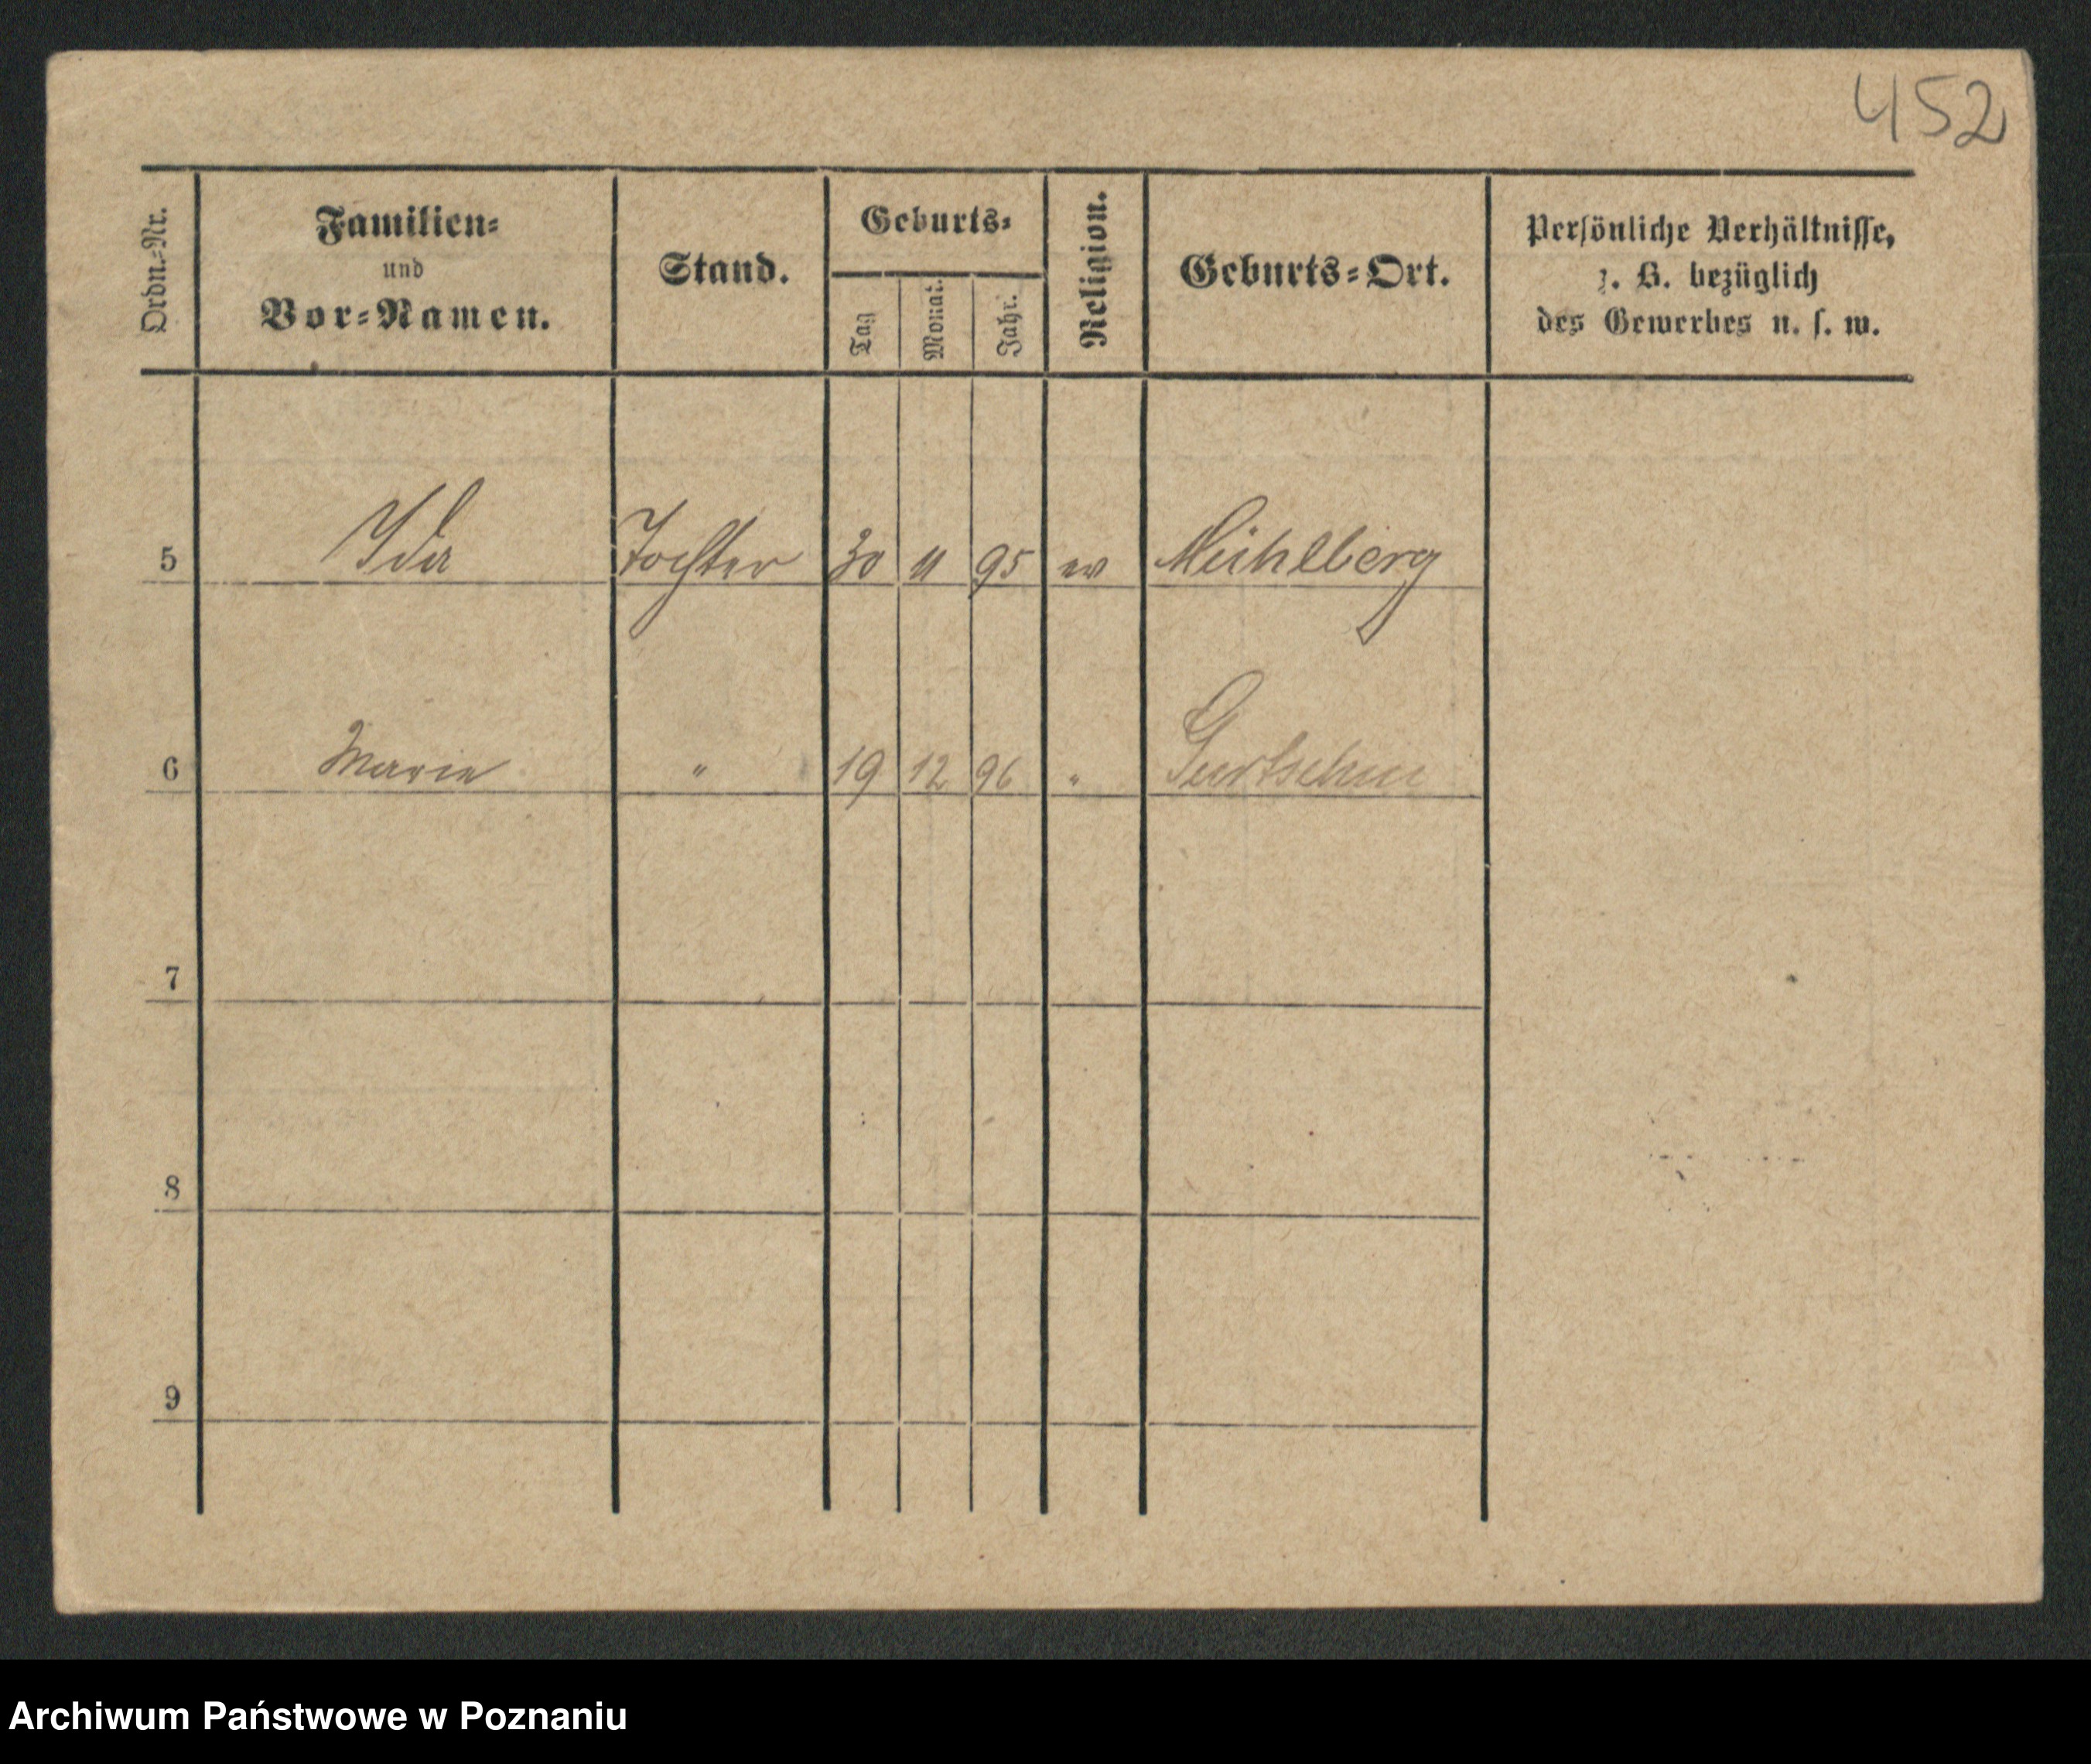 452
Ordn.-Nr.
Familien-
und
Vor-Namen.
Stand.
Geburts-
Tag
Monat.
Jahr.
Religion.
Geburts-Ort.
Persönliche Verhältnisse,
z. B. bezüglich
des Gewerbes u. s. w.
5 Ida Tochter 30 11 95 ev Mühlberg
6 Marie " 19 12 96 " Gurtschin
7
8
9
Archiwum Państwowe w Poznaniu